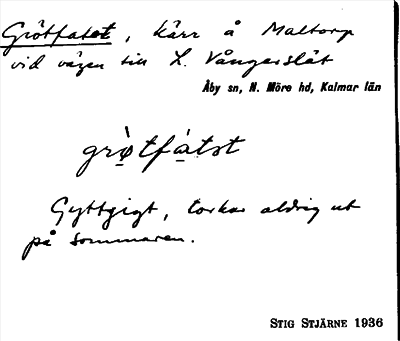 Grötfatet, kärr å Maltorp
vid vägen till L. Vångerslät
Åby sn, N. Möre hd, Kalmar län
grø̀tfàtst
Gyttgigt, torkar aldrig ut
på sommaren.
STIG STJÄRNE 1936